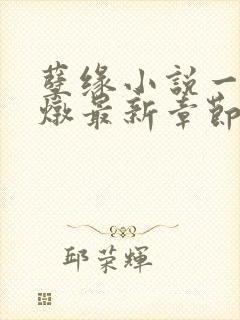 孽缘小説一
燉最新章節
邱荣輝